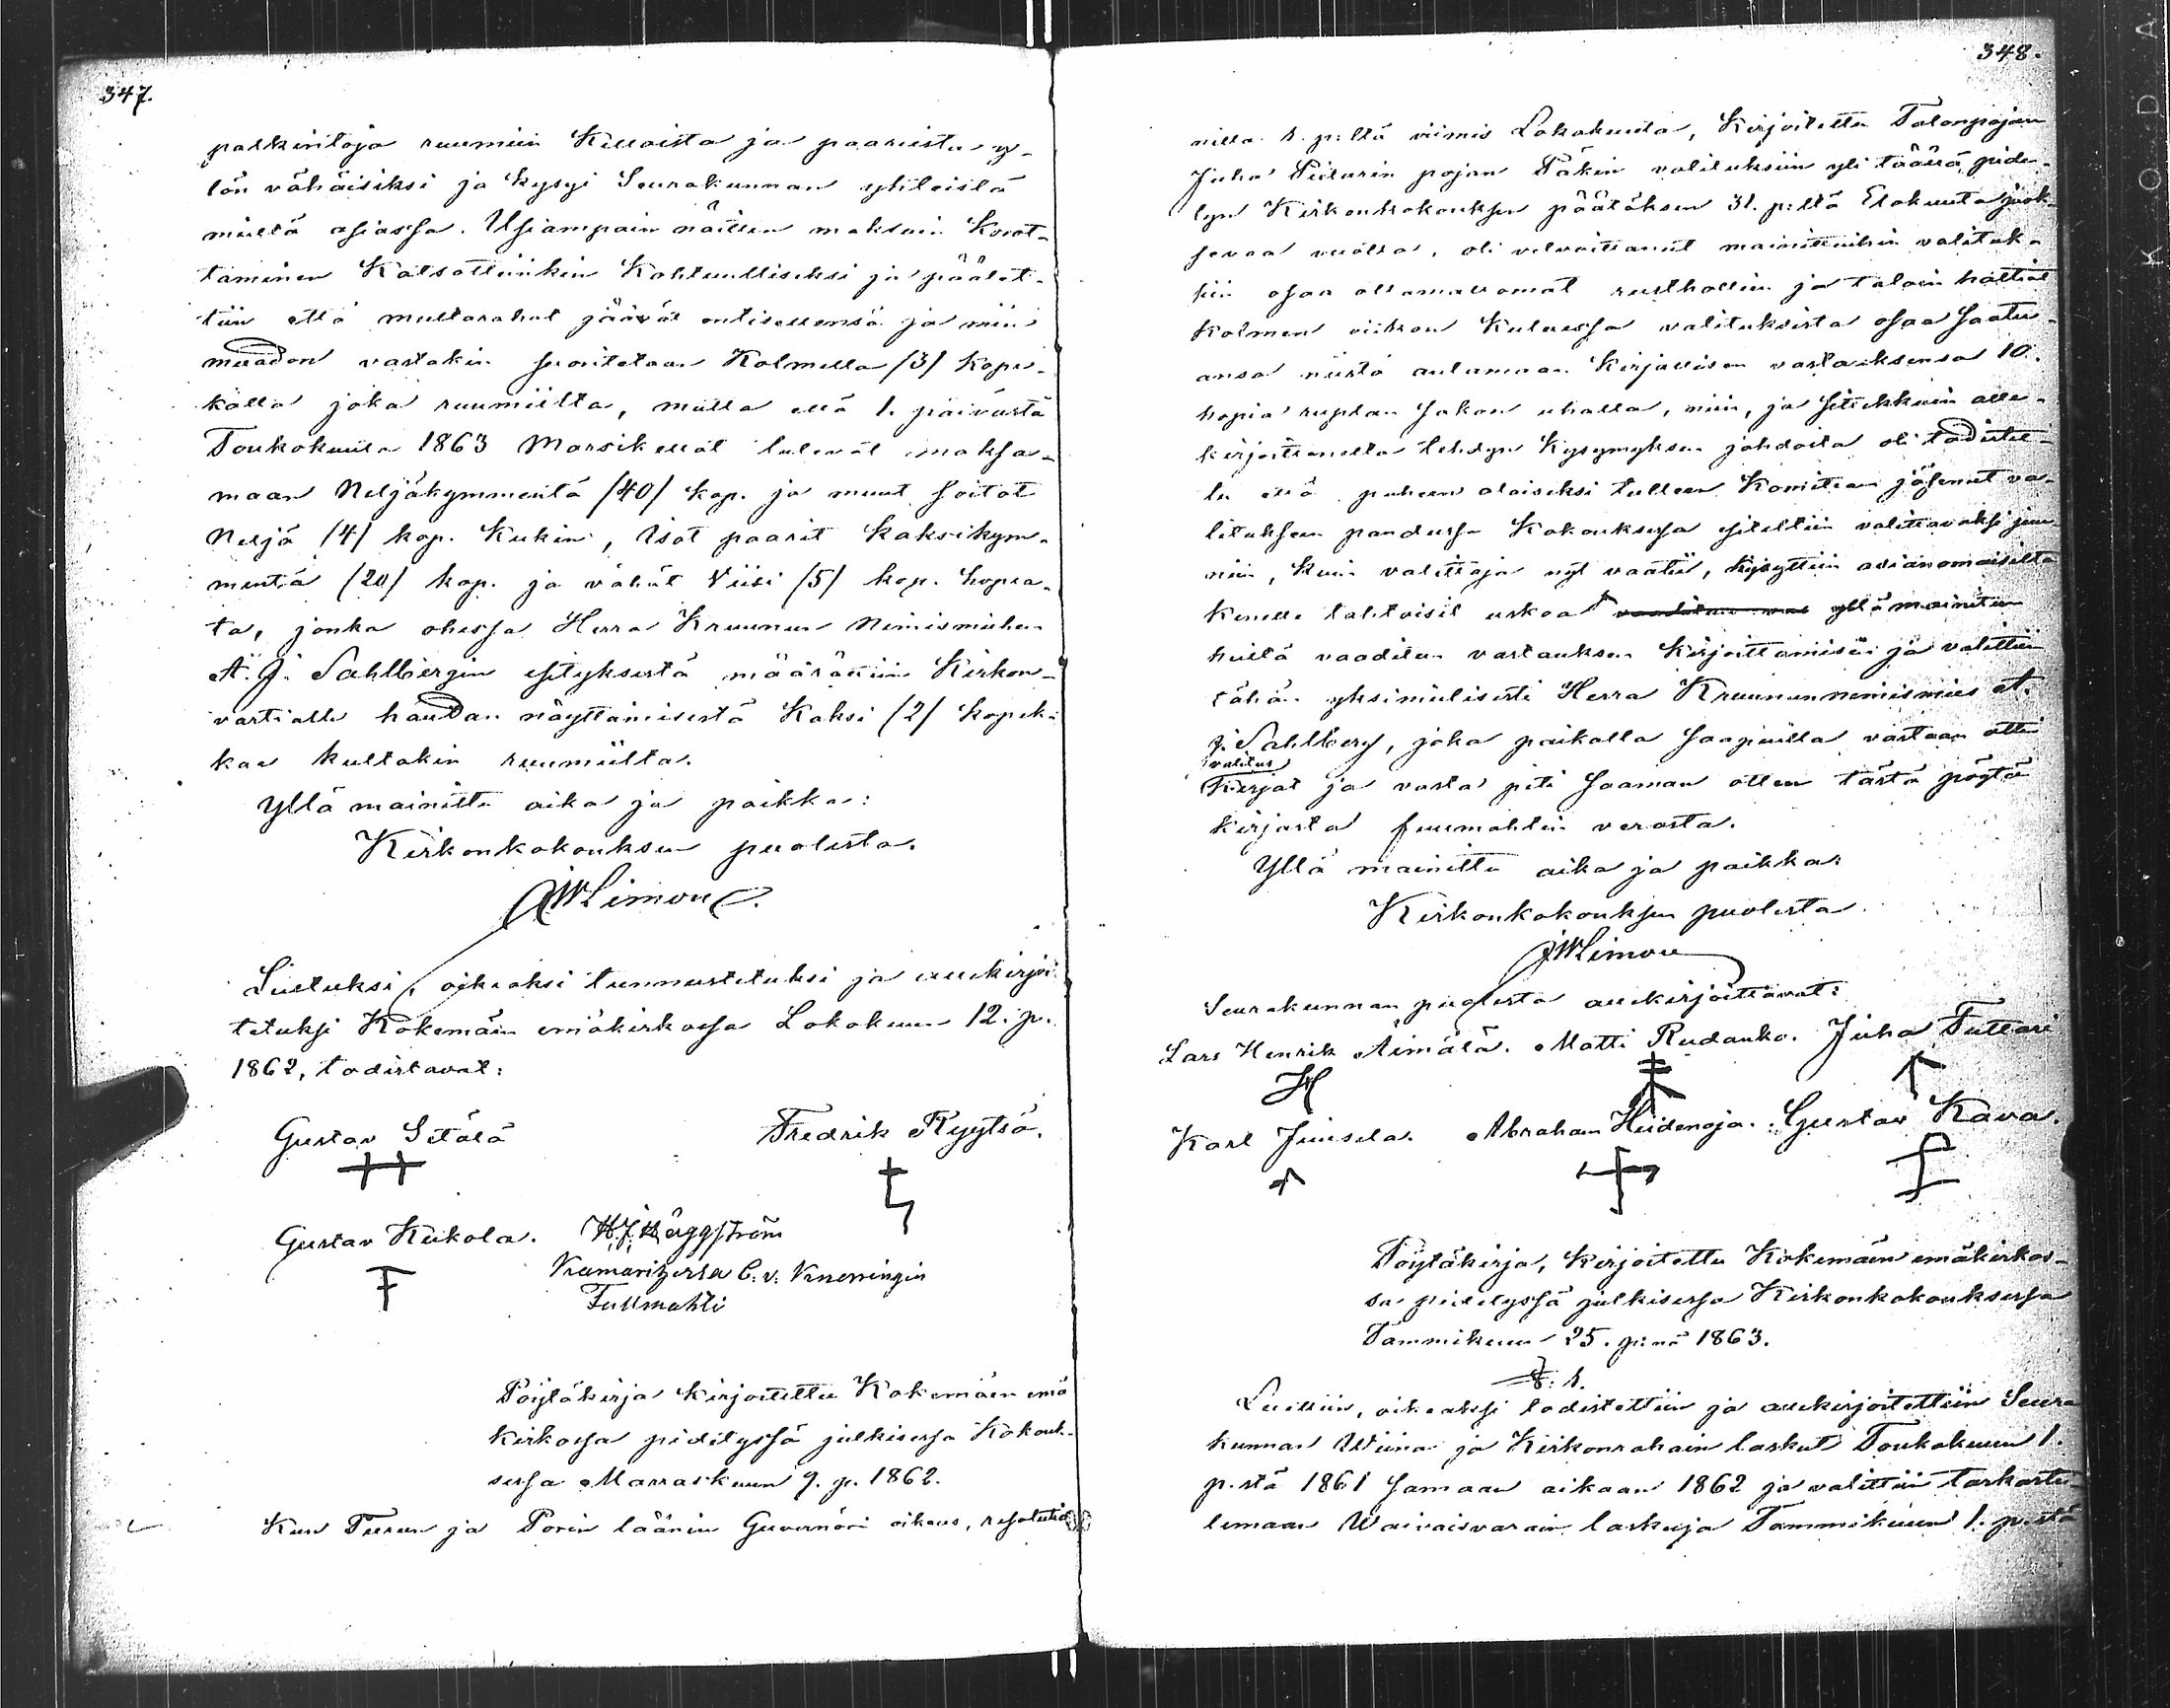 347.
palkintoja ruumiin Killoista ja paariista y-
lön vähäisiksi ja kysyi Seurakunnan yhteistä
mieltä asiassa. Usiampain näitten maksuin Korot-
taminen Katsottiinkin Kohtuulliseksi ja päätet-
tiin että multarahat jäävät entisellensä ja niin
muodon vastakin suoritetaan Kolmella /3/ kope-
kalla joka ruumiilta, mutta että 1. päivästä
Toukokuuta 1863 Morsikellot tulevat maksa-
maan Neljäkymmentä /40/ kop. ja muut soitot
Neljä /4/ kop. Kukin, isot paarit kaksikym-
mentä /20/ kop. ja vähät Viisi /5/ kop. hopea-
ta, jonka ohessa Herra Kruunun Nimismiehen
A. J. Sahlbergin esityksestä määrättiin Kirkon-
vartialle haudan näyttämisestä Kaksi /2/ kopek-
kaa kultakin ruumiilta.
Yllä mainittu aika ja paikka:
Kirkonkokouksen puolesta.
JWLimon
Luetuksi, oikeaksi tunnustetuksi ja allekirjoi-
tetuksi Kokemäen emäkirkossa Lokakuun 12. p.
1862, todistavat:
Gustav Sitälä Fredrik Ryytsä.
Gustav Kukola. H. J. Häggström
Kamarizersa C. v. Knorringin
Fullmahti
Pöytäkirja kirjoitettu Kokemäen emä
kirkossa pidetyssä julkisessa Kokouk-
sessa Marraskuun 9. p. 1862.
Kun Turun ja Porin läänin Guvernöri oikeus, resolutio
348.
nilla 8. p:ltä viimis Lokakuuta, Kirjoitettu Talonpojan
Juha Piilurin pojan Päkin valituksiin yli täällä pide-
tyn Kirkonkokouksen päätöksen 31. p:ltä Elokuuta juok-
sevaa vuotta, oli velvoittanut mainittuihin valituk-
siin osaa ottamattomat rusthollin ja taloin haltiat
Kolmen viikon Kuluessa valituksista osaa saatu-
ansa niistä antamaan Kirjallisen vastauksensa 10.
hopia ruplan sakon uhalla, niin, ja sitekkuin alle-
kirjoittaneelta tehdyn Kysymyksen johdosta oli todistet-
tu että puheen alaiseksi tulleen Komitean jäsenet va-
lituksen pandussa Kokouksessa esiteltiin valittavaksi juu-
niin, Kuin valittaja nyt vaatii, kysyttiin asianomaisilta
Kenelle tahtoisit uskoa yllämainitun
heiltä vaaditun vastauksen Kirjoittamisen ja valittiin
tähän yksimielisesti Herra Kruununnimismies A.
J. Sahlberg, joka paikalla saapuilla vastaan otti
valitus
Kirjat ja vasta piti saaman otteen tästä pöytä
kirjasta fuumahtin verosta.
Yllä mainittu aika ja paikka:
Kirkonkokouksen puolesta.
JWLimon
Seurakunnan puolesta allekirjoittavat:
Lars Henrik Äimälä. Matti Rudanko. Juha Tuttari
Karl Juusela. Abraham Hiidenoja. Gustav Kava.
Pöytäkirja, Kirjoitettu Kokemäen emäkirkos-
sa pidetyssä julkisessa Kirkonkokouksessa
Tammikuun 25. p:nä 1863.
§. 1.
Luettiin, oikeaksi todistettiin ja allekirjoitettiin Seura
kunnan Wiina ja Kirkonrahain laskut Toukokuun 1.
p.stä 1861 samaan aikaan 1862 ja valittiin tarkaste-
lemaan Waivaisvarain laskuja Tammikuun 1. p.stä